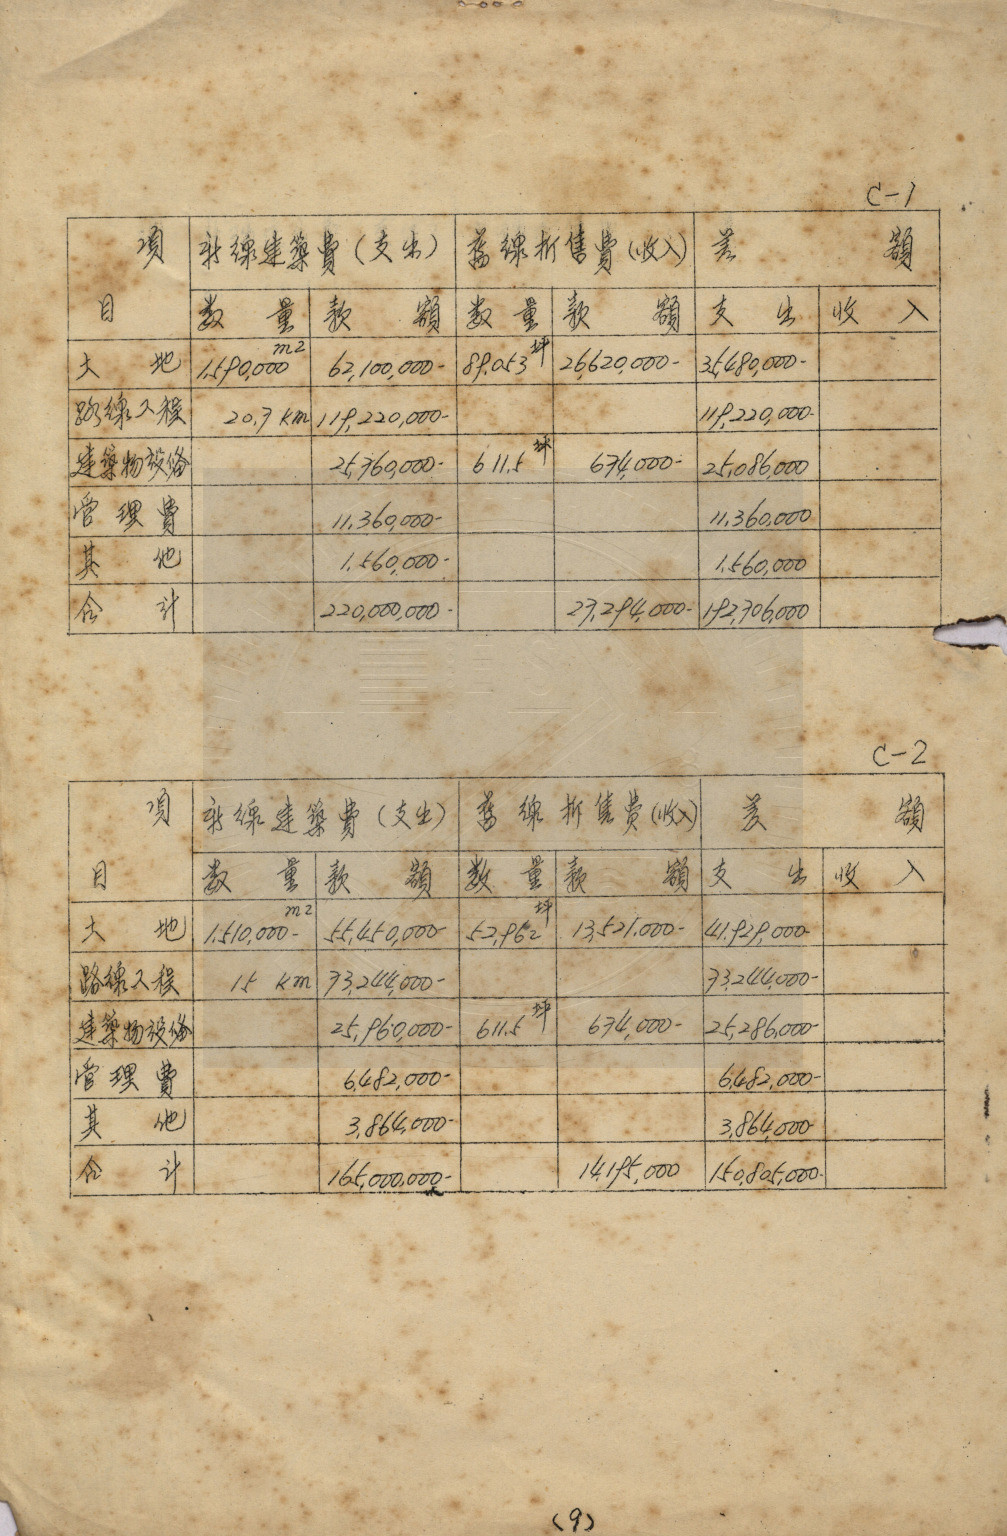 C-1
項 新線建築費(支出) 舊線折售費(收入) 差額
目 数量 款額 数量 款額 支出 收入
土地 1,590,000 m2 62,100,000- 89,053坪 26,620,000- 35,480,000-
路線工程 20.7 km 119,220,000- 119,220,000-
建築物設备 25,760,000- 611.5坪 674,000- 25,086,000
管理費 11,360,000- 11,360,000
其他 1,560,000- 1,560,000
合計 220,000,000- 27,294,000- 192,706,000
C-2
項 新線建築費(支出) 舊線折售費(收入) 差額
目 数量 款額 数量 款額 支出 收入
土地 1,510,000- m2 55,450,000- 52,962坪 13,521,000- 41,929,000-
路線工程 15 km 73,244,000- 73,244,000-
建築物設备 25,960,000- 611.5坪 674,000- 25,286,000-
管理費 6,482,000- 6,482,000-
其他 3,864,000- 3,864,000-
合計 165,000,000- 14,195,000 150,805,000-
(9)